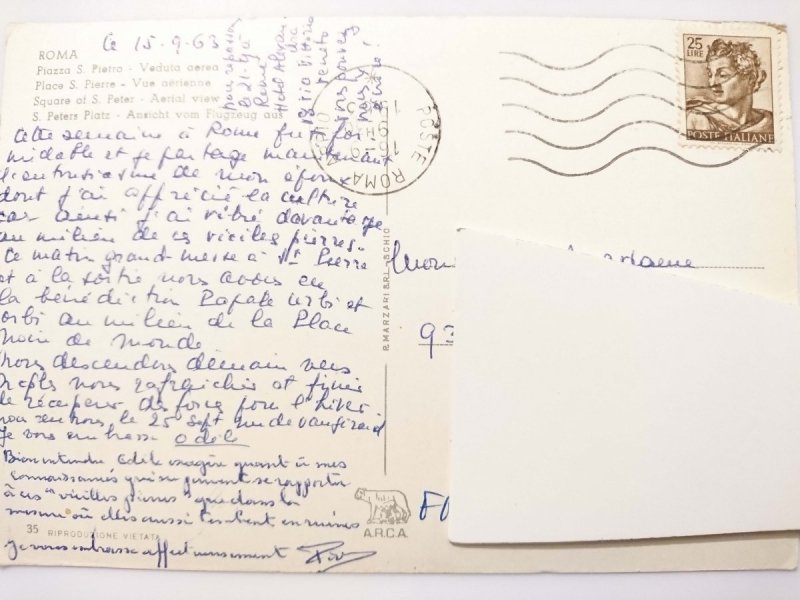 le 15-9-63
ROMA
Piazza S. Pietro - Veduta aerea
Place S. Pierre - Vue aérienne
Square of S. Peter - Aerial view
S. Peters Platz - Ansicht vom Flugzeug aus
pour réponse
le 21-
Via Vittorio
Veneto
vous pouvez
nous y
écrire!
Cette semaine à Rome fut for
midable et je partage maintenant
l'entousiasme de mon époux
dont j'ai apprécié la culture
car ainsi j'ai vibré davantage
au milieu de ces vieilles pierres.
Ce matin grand messe à St Pierre
et à la sortie nous avons eu
la bénédiction Papale Urbi et
orbi au milieu de la Place
noire de monde
Nous descendons demain vers
Naples nous rafraichir et finir
de récupérer des forces pour l'hiver.
nous rentrons le 25 sept rue de Vaugirard
Je vous embrasse Odile
Bien entendu Odile exagère quant à mes
connaissances qui ne peuvent se rapporter
à ces "vieilles pierres" que dans la
mesure où elles aussi tombent en ruines
Je vous embrasse affectueusement
35 RIPRODUZIONE VIETATA
R. MARZARI S.R.L. - SCHIO
A.R.C.A.
POSTE ROMA
25
LIRE
POSTE ITALIANE